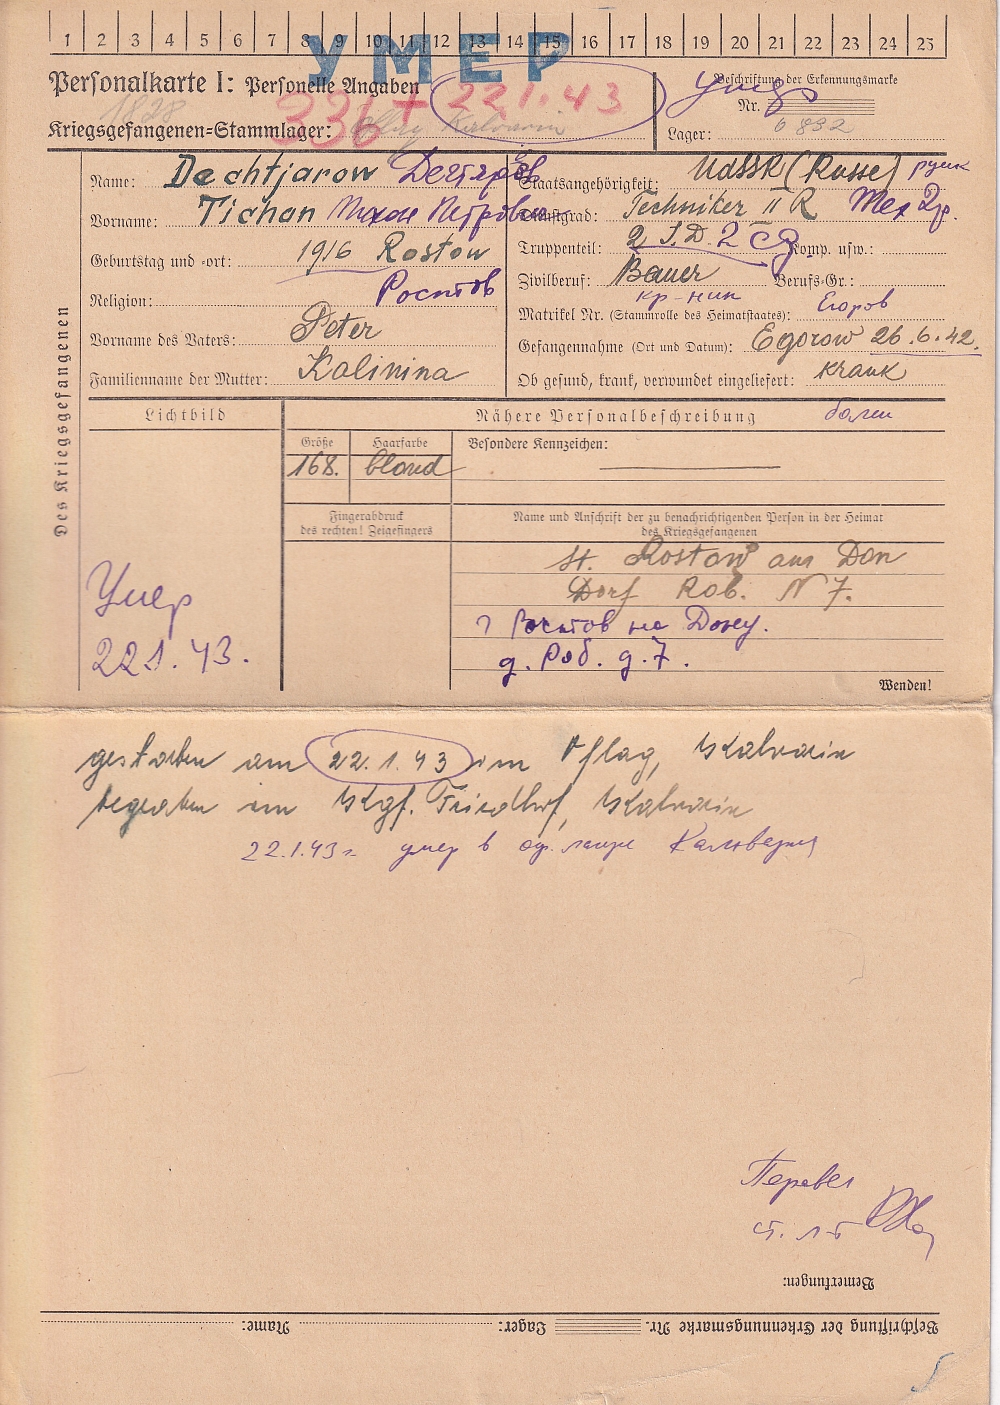 1 2 3 4 5 6 7 8 9 10 11 12 13 14 15 16 17 18 19 20 21 22 23 24 25
УМЕР
Personalkarte I: Personelle Angaben
336 + 22.1.43
1828
Kriegsgefangenen=Stammlager: Oflag Kalvarin
Beschriftung der Erkennungsmarke
умер
Nr.
Lager: 6832
Des Kriegsgefangenen
Name: Dechtjarow Дегтярёв
Vorname: Tichon Тихон Петрович
Geburtstag und =ort: 1916 Rostow
Ростов
Religion:
Vorname des Vaters: Peter
Familienname der Mutter: Kalinina
Staatsangehörigkeit: UdSSR (Russe) русск
Dienstgrad: Techniker II R Тех 2р.
Truppenteil: 2 S.D. 2 сд Komp. usw.:
Zivilberuf: Bauer Berufs=Gr.:
кр-ник
Matrikel Nr. (Stammrolle des Heimatstaates): Егоров
Gefangennahme (Ort und Datum): Egorow 26.6.42.
Ob gesund, krank, verwundet eingeliefert: krank
болен
Lichtbild
Nähere Personalbeschreibung
Größe
Haarfarbe
Besondere Kennzeichen:
168. blond
Fingerabdruck
des rechten! Zeigefingers
Name und Anschrift der zu benachrichtigenden Person in der Heimat
des Kriegsgefangenen
St. Rostow am Don
Dorf Rob. N 7.
г Ростов на Дону.
д. Роб. д. 7.
Умер
22.1.43.
Wenden!
gestorben am 22.1.43 im Oflag, Kalvarin
begraben im Kgf. Friedhof, Kalvarin
22.1.43 г. умер в оф. лагере Кальвария
Перевел
ст. л-т
Bemerkungen:
Beschriftung der Erkennungsmarke Nr. Lager: Name: